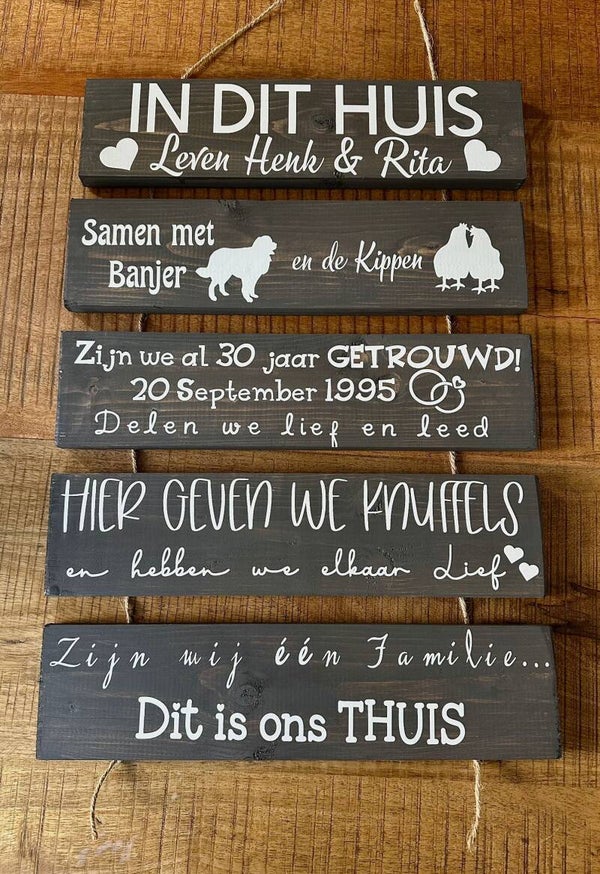 IN DIT HUIS
Leven Henk & Rita
Samen met
Banjer
en de Kippen
Zijn we al 30 jaar GETROUWD!
20 September 1995
Delen we lief en leed
HIER GEVEN WE KNUFFELS
en hebben we elkaar Lief
Zijn wij één Familie...
Dit is ons THUIS